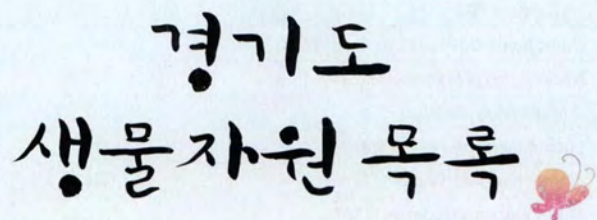 경기도
생물자원 목록